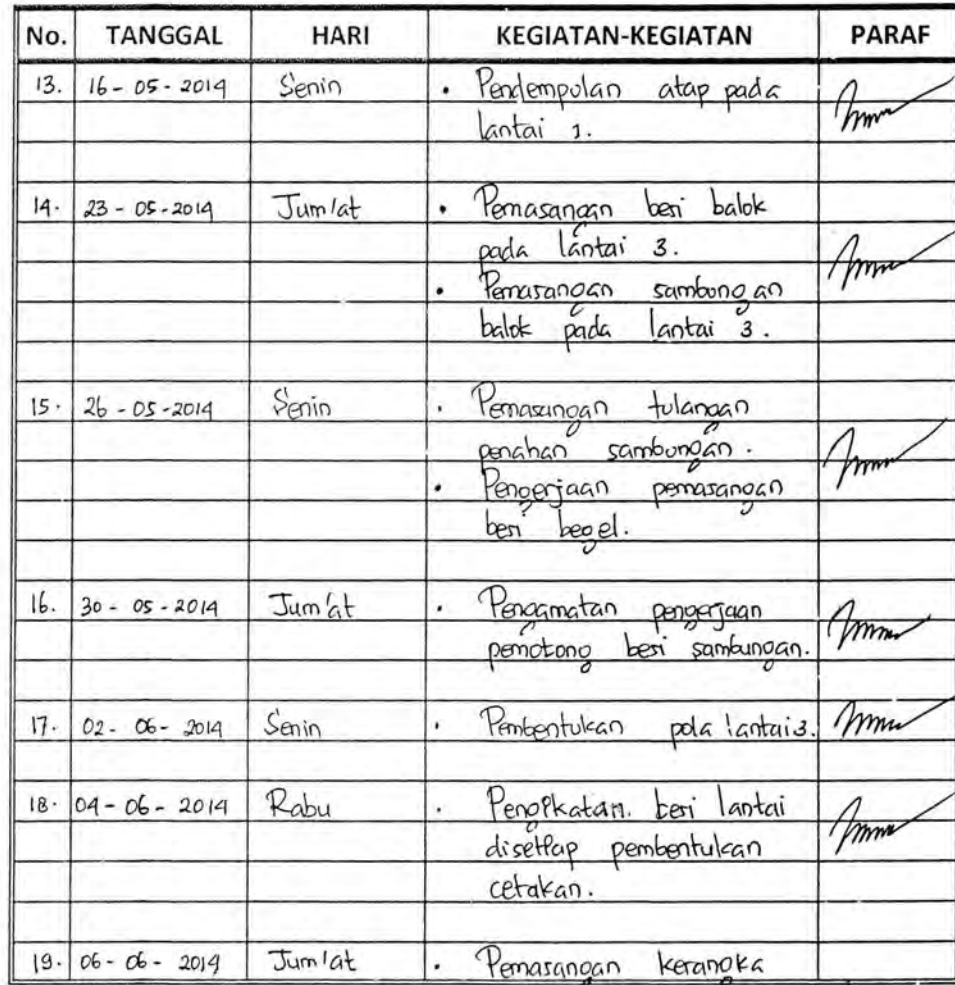 No. TANGGAL HARI KEGIATAN-KEGIATAN PARAF
13. 16 - 05 - 2014 Senin • Pendempulan atap pada
lantai 1.
14. 23 - 05 - 2014 Jum'at • Pemasangan besi balok
pada lantai 3.
• Pemasangan sambungan
balok pada lantai 3.
15. 26 - 05 - 2014 Senin • Pemasangan tulangan
penahan sambungan.
• Pengerjaan pemasangan
besi begel.
16. 30 - 05 - 2014 Jum'at • Pengamatan pengerjaan
pemotong besi sambungan.
17. 02 - 06 - 2014 Senin • Pembentukan pola lantai 3.
18. 04 - 06 - 2014 Rabu • Pengikatan. besi lantai
disetiap pembentukan
cetakan.
19. 06 - 06 - 2014 Jum'at • Pemasangan kerangka